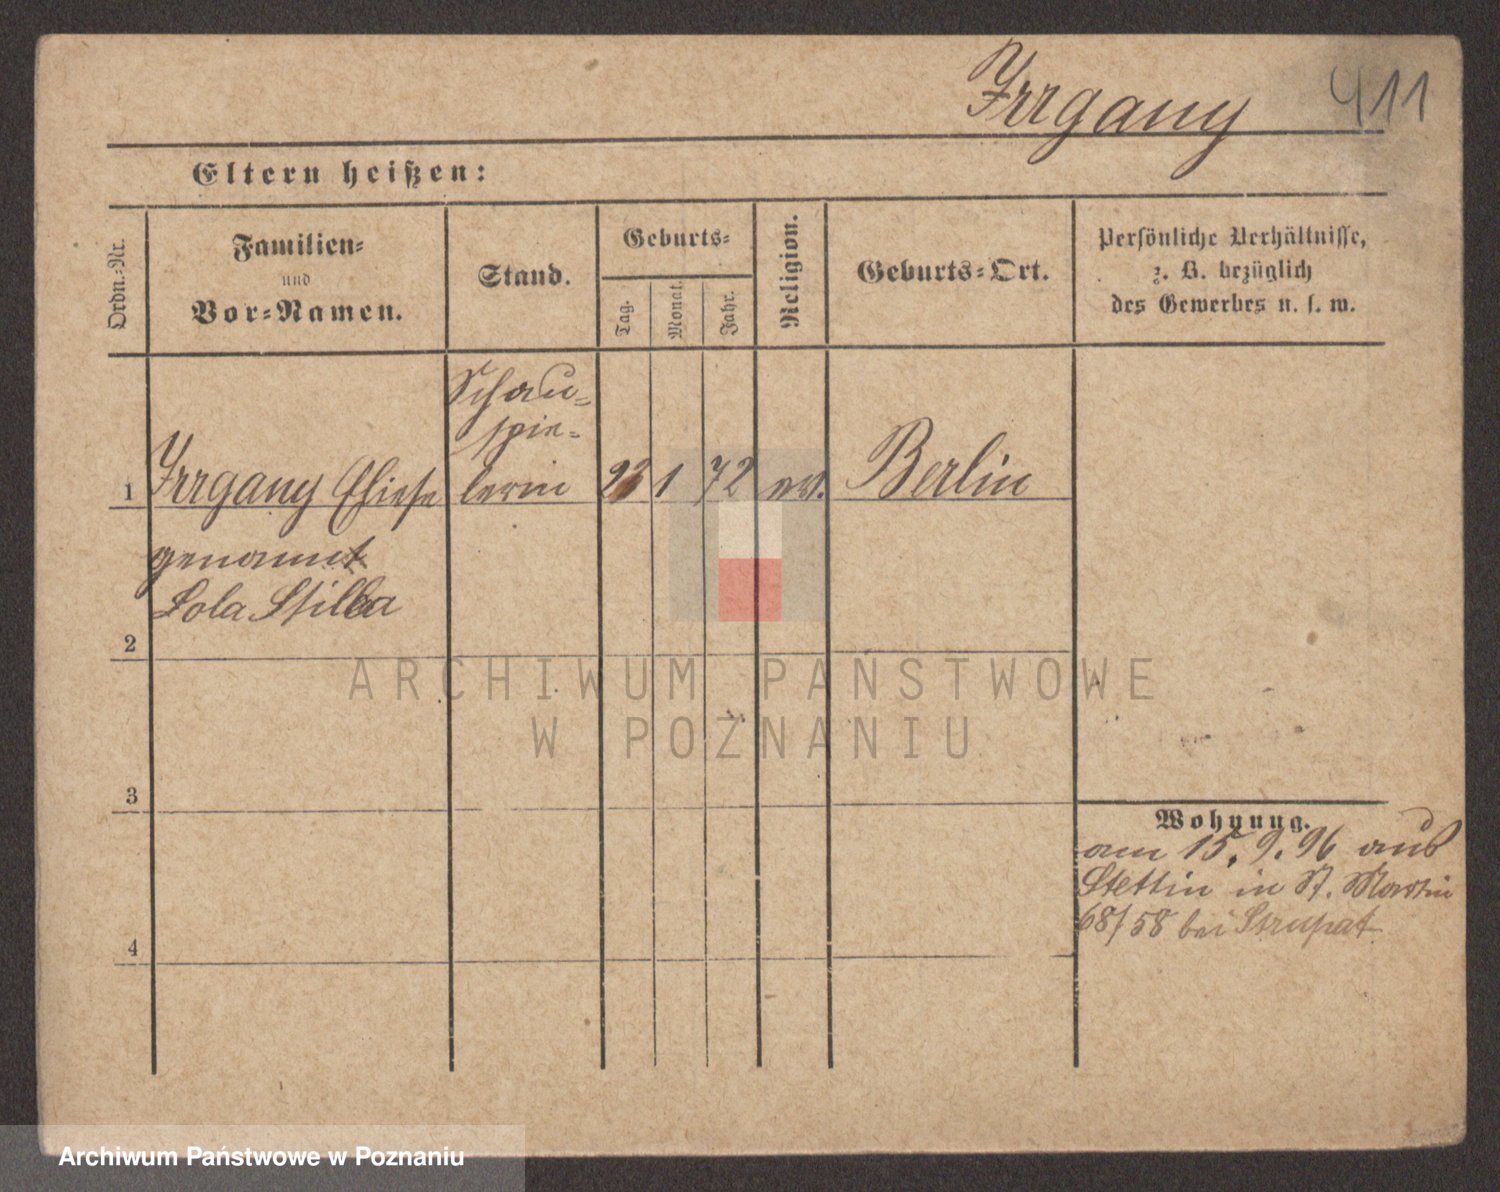 Irrgang
411
Eltern heißen:
Ordn.=Nr.
Familien=
und
Vor=Namen.
Stand.
Geburts=
Tag.
Monat.
Jahr.
Religion.
Geburts=Ort.
Persönliche Verhältnisse,
z. B. bezüglich
des Gewerbes u. s. w.
Schau=
spie=
1 Irrgang lerin 23 1 72 ev. Berlin
genannt
Lola Stilla
2
ARCHIWUM PAŃSTWOWE
W POZNANIU
3
Wohnung.
am 15. 9. 96 aus
Stettin in St. Martin
68/58 bei
4
Archiwum Państwowe w Poznaniu